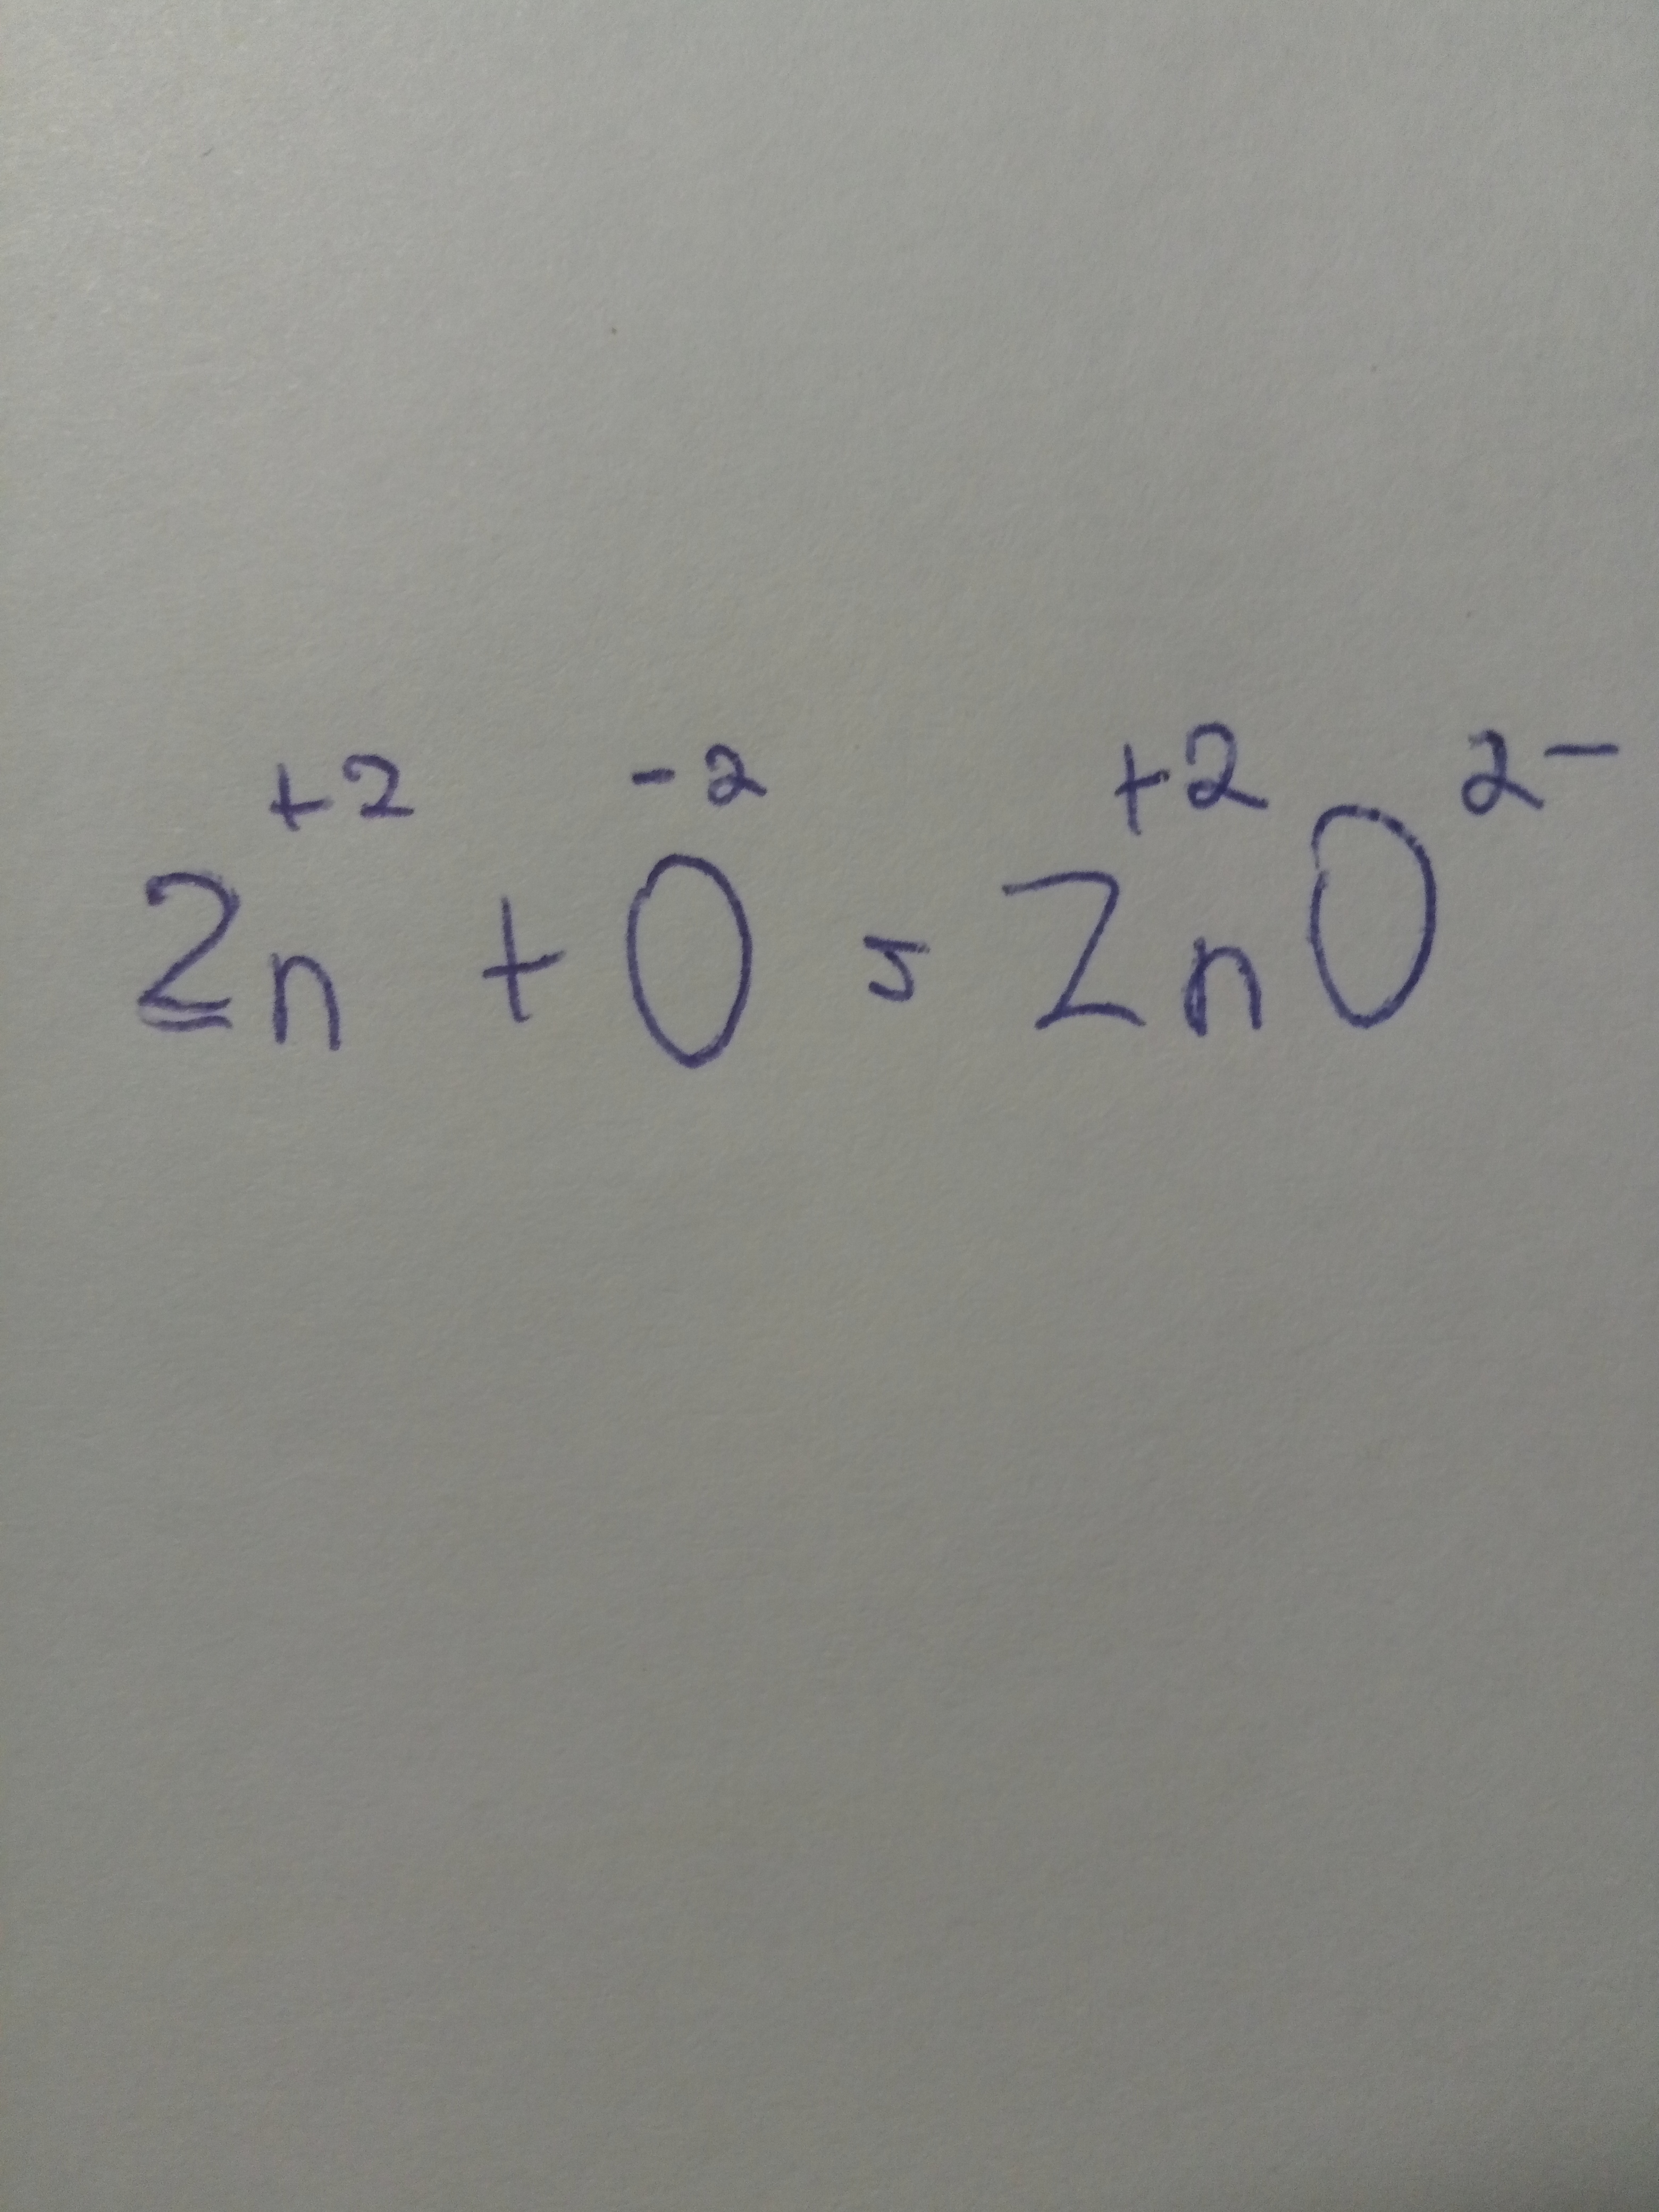 Zn⁺² + O⁻² = Zn⁺²O²⁻